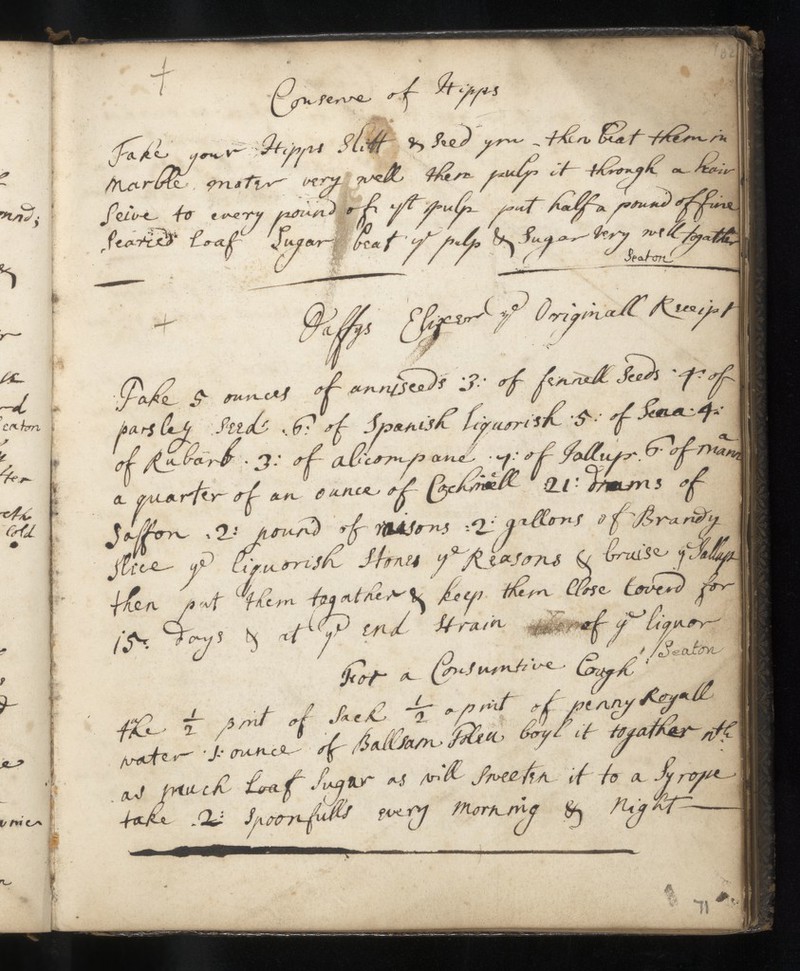 102
Conserve of Hipps
Take your Hipps Slitt & Seed ym then beat them in
marble moter very well then pulp it through a hair
Seive to every pound of yt pulp put half a pound of fine
Searied Loaf Sugar beat ye pulp & Sugar very well togather
Seaton
Daffys Elixer ye Originall Receipt
Take 5 ounces of anniseeds :3: of fennell Seeds :4: of
parsley Seed: .6: of Spanish liquorish :5: of Sena 4:
of Rubarb .3: of alicompane .4: of Jallup. 6 of mana
a quarter of an ounce of Cochinell 21: drams of
Saffon .2: pound of raisons :2: gallons of Brandy
Slice ye liquorish Stones ye Reasons & bruise ye Jallup
then put them togather & keep them Close Coverd for
15: days & at ye end Strain of ye liquor
Seaton
For a Consumtive Cough
take ½ pint of Sack ½ a pint of penny Royall
water .1: ounce of Ballsam Toleu boyl it togather wth
as much Loaf Sugar as will Sweeten it to a Syrope
take .2: Spoonfulls every morning & Night
71